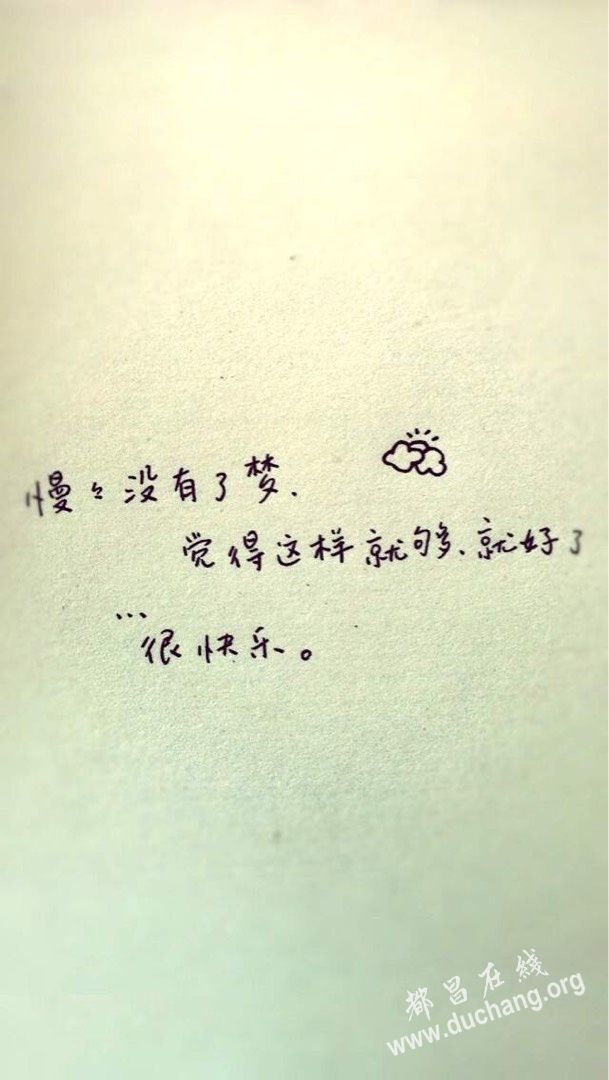 慢々没有了梦、
觉得这样就够、就好了
...
很快乐。
都昌在綫
www.duchang.org